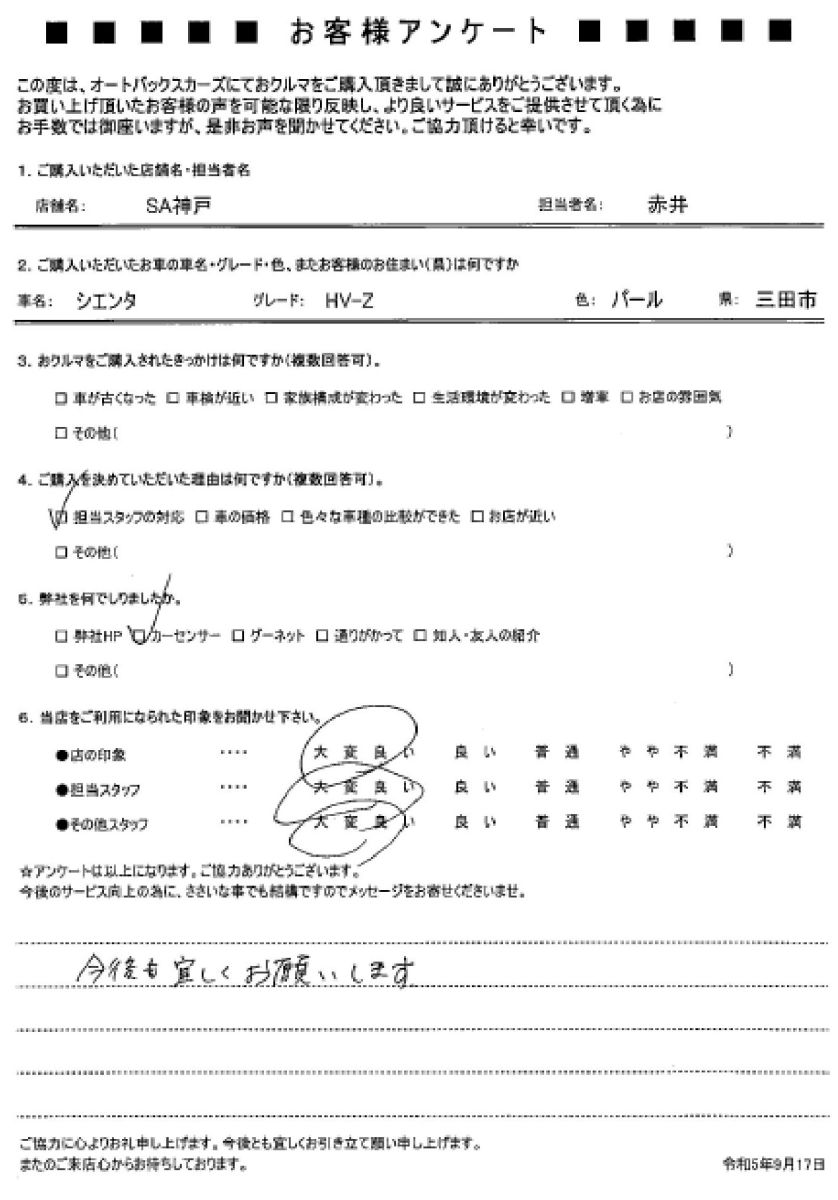 ■ ■ ■ ■ ■ お客様アンケート ■ ■ ■ ■ ■
この度は、オートバックスカーズにておクルマをご購入頂きまして誠にありがとうございます。
お買い上げ頂いたお客様の声を可能な限り反映し、より良いサービスをご提供させて頂く為に
お手数では御座いますが、是非お声を聞かせてください。ご協力頂けると幸いです。
1. ご購入いただいた店舗名・担当者名
店舗名: SA神戸 担当者名: 赤井
2. ご購入いただいたお車の車名・グレード・色、またお客様のお住まい(県)は何ですか
車名: シエンタ グレード: HV-Z 色: パール 県: 三田市
3. おクルマをご購入されたきっかけは何ですか(複数回答可)。
□ 車が古くなった □ 車検が近い □ 家族構成が変わった □ 生活環境が変わった □ 増車 □ お店の雰囲気
□ その他( )
4. ご購入を決めていただいた理由は何ですか(複数回答可)。
☑ 担当スタッフの対応 □ 車の価格 □ 色々な車種の比較ができた □ お店が近い
□ その他( )
5. 弊社を何でしりましたか。
□ 弊社HP ☑ カーセンサー □ グーネット □ 通りがかって □ 知人・友人の紹介
□ その他( )
6. 当店をご利用になられた印象をお聞かせ下さい。
●店の印象 ‥‥ 大変良い 良い 普通 やや不満 不満
●担当スタッフ ‥‥ 大変良い 良い 普通 やや不満 不満
●その他スタッフ ‥‥ 大変良い 良い 普通 やや不満 不満
☆アンケートは以上になります。ご協力ありがとうございます。
今後のサービス向上の為に、ささいな事でも結構ですのでメッセージをお寄せくださいませ。
今後も宜しくお願いします
ご協力に心よりお礼申し上げます。今後とも宜しくお引き立て願い申し上げます。
またのご来店心からお待ちしております。 令和5年9月17日